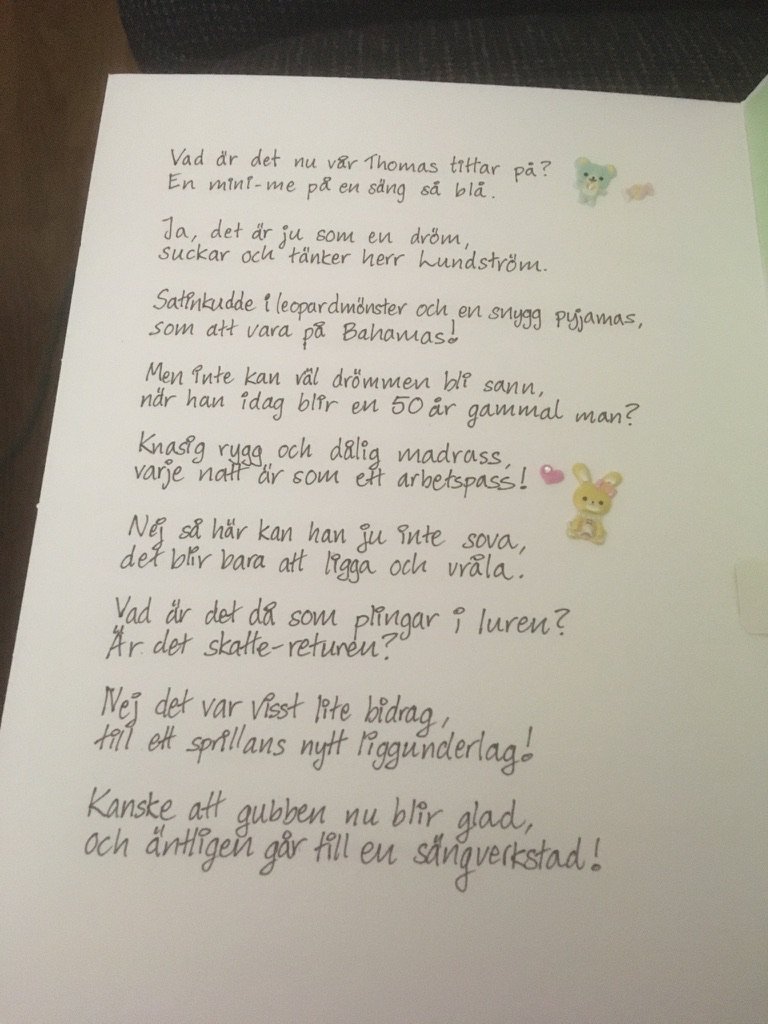 Vad är det nu vår Thomas tittar på?
En mini-me på en säng så blå.
Ja, det är ju som en dröm,
suckar och tänker herr Lundström.
Satinkudde i leopardmönster och en snygg pyjamas,
som att vara på Bahamas!
Men inte kan väl drömmen bli sann,
när han idag blir en 50 år gammal man?
Knasig rygg och dålig madrass,
varje natt är som ett arbetspass!
Nej så här kan han ju inte sova,
det blir bara att ligga och vråla.
Vad är det då som plingar i luren?
Är det skatte-returen?
Nej det var visst lite bidrag,
till ett sprillans nytt liggunderlag!
Kanske att gubben nu blir glad,
och äntligen går till en sängverkstad!